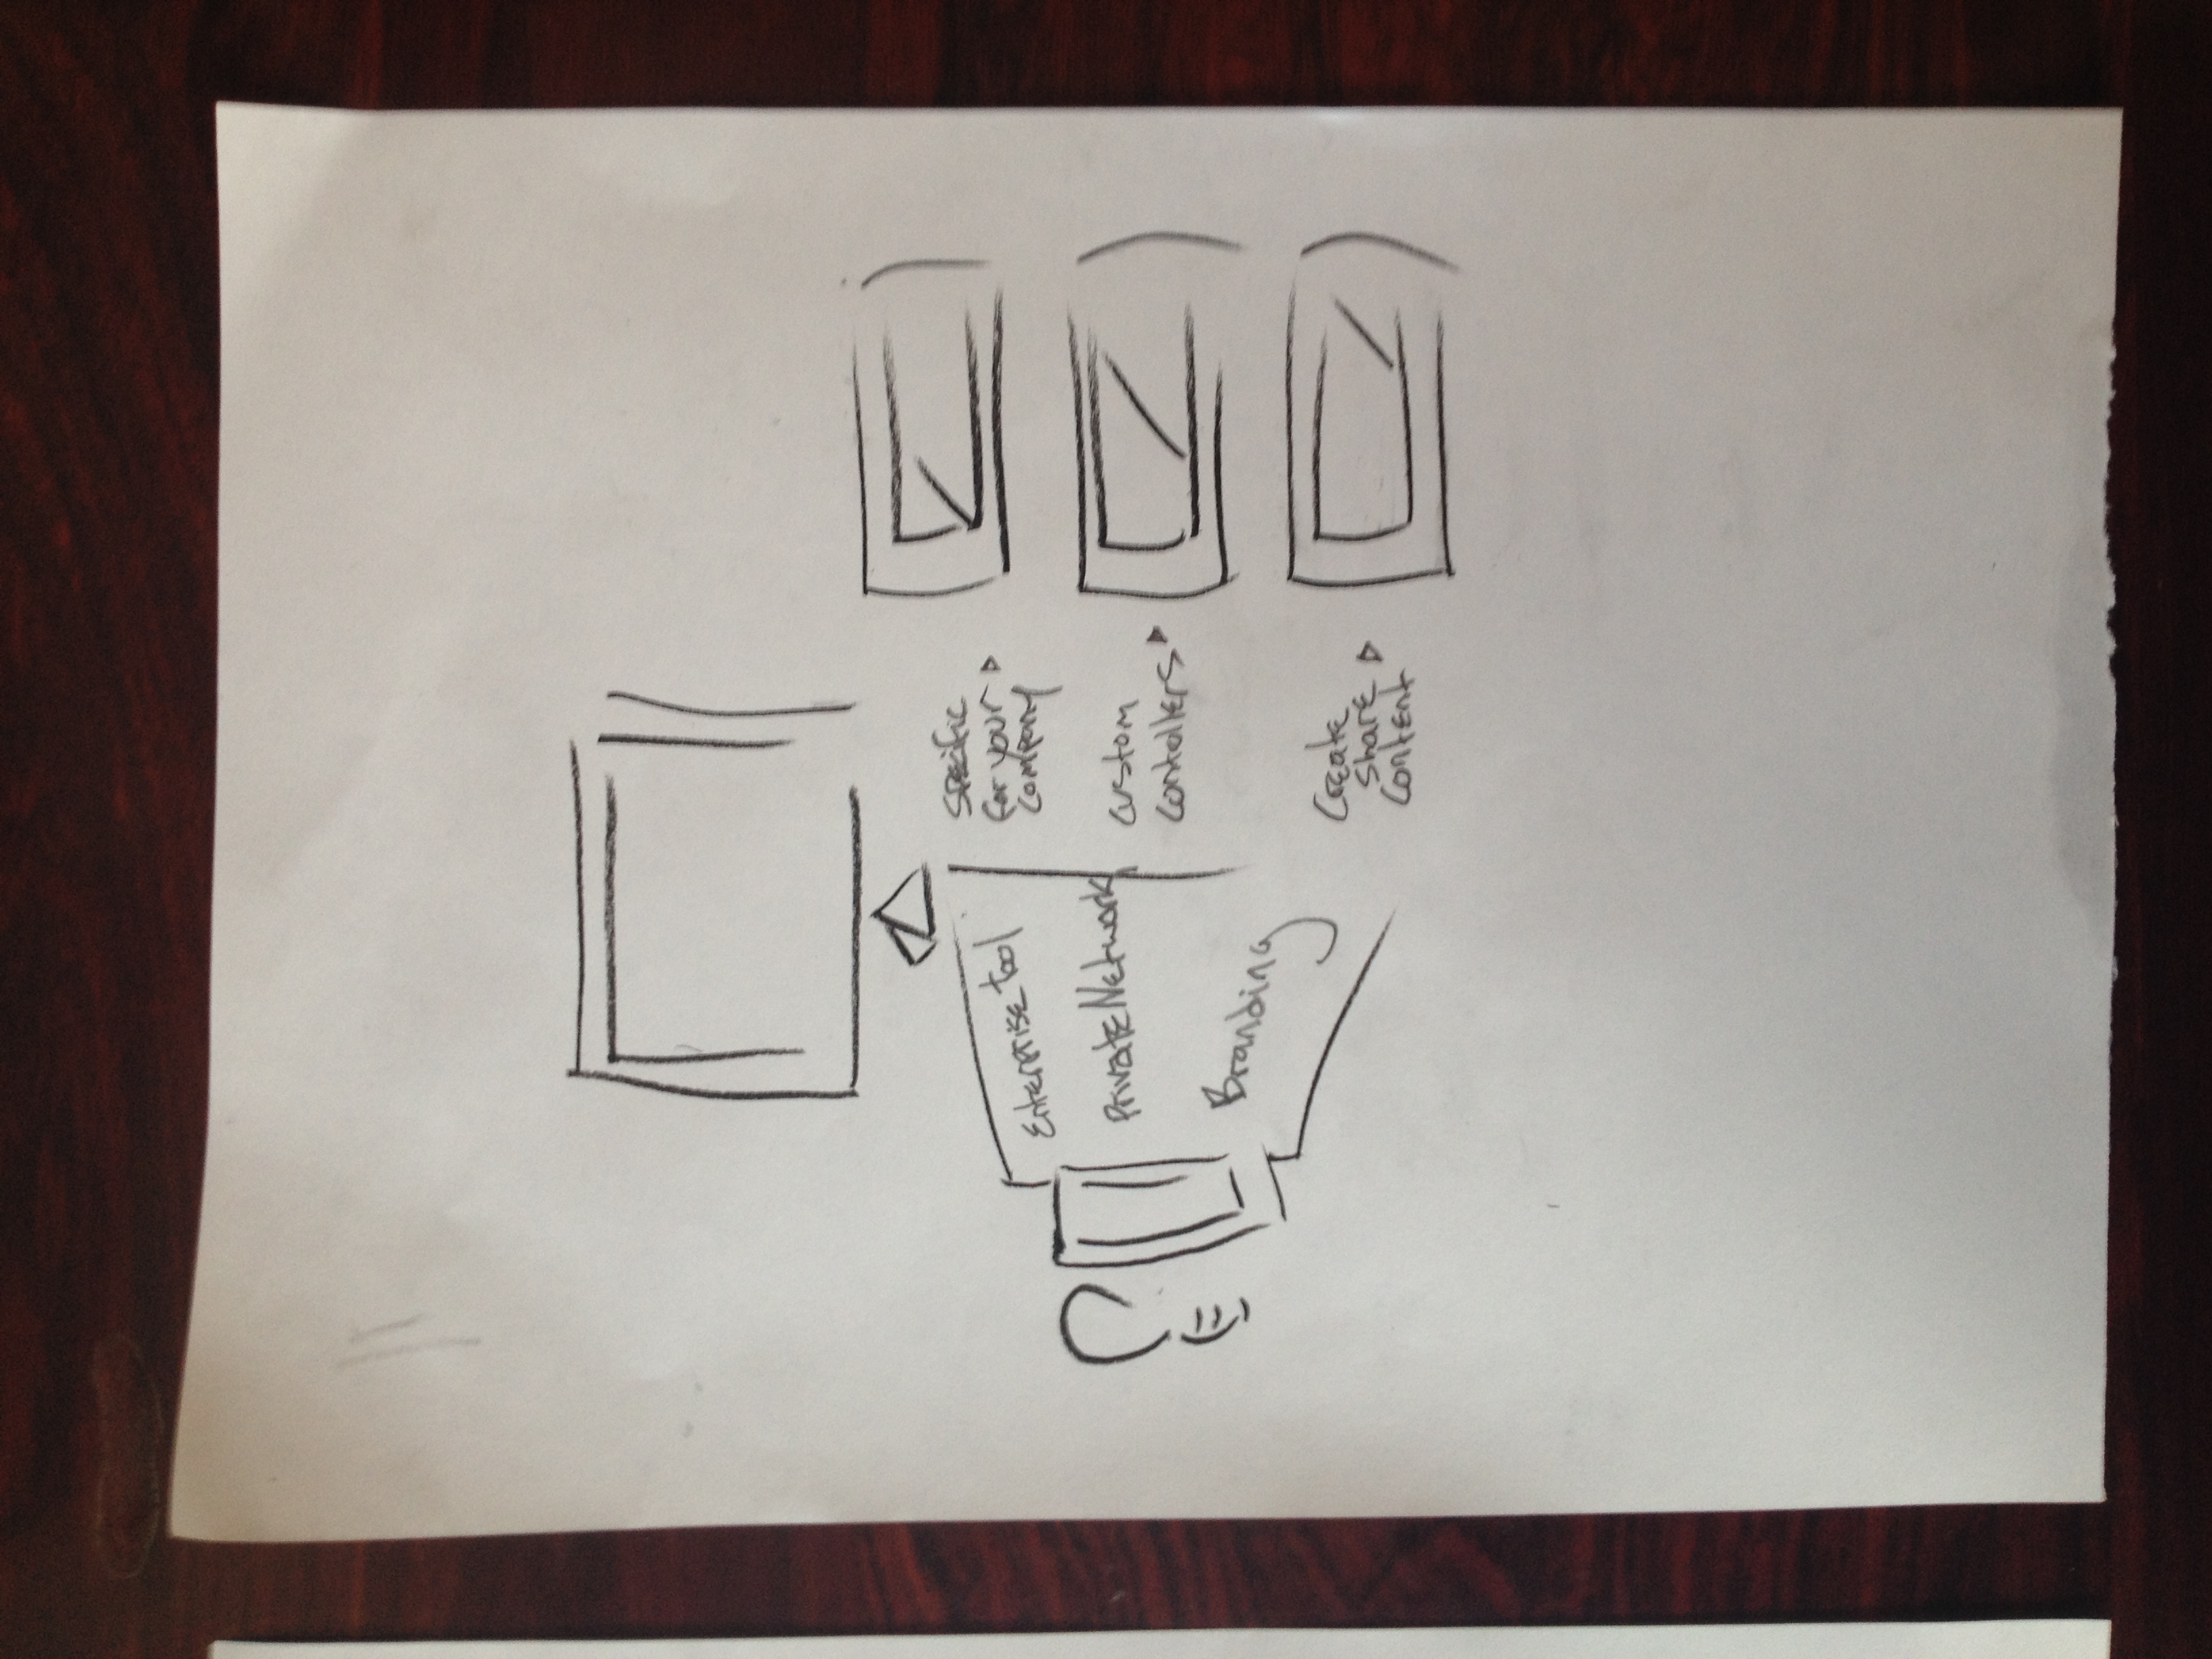 Enterprise Tool
Private Network
Branding
Specific
for your
company
Custom
Contollers
Create
Share
Content